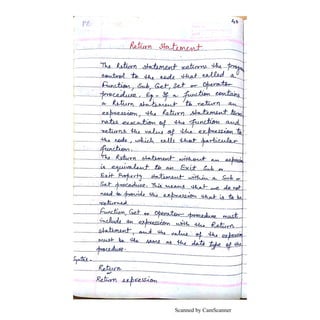 Return Statement
The Return statement returns the program
control to the code that called a
Function, Sub, Get, Set or Operator
procedure. Eg - If a function contains
a Return statement to return an
expression, the Return statement
nates execution of the function and
returns the value of the expression to
the code, which calls that particular
function.
The Return statement without an expression
is equivalent to an Exit Sub or
Exit Property statement within a Sub or
Set procedure. This means that we do not
need to provide the expression that is to be
returned.
Function, Get or Operator procedure must
include an expression with the Return
statement, and the value of the expression
must be the same as the data type of the
procedure.
Syntax -
Return
Return expression
Scanned by CamScanner